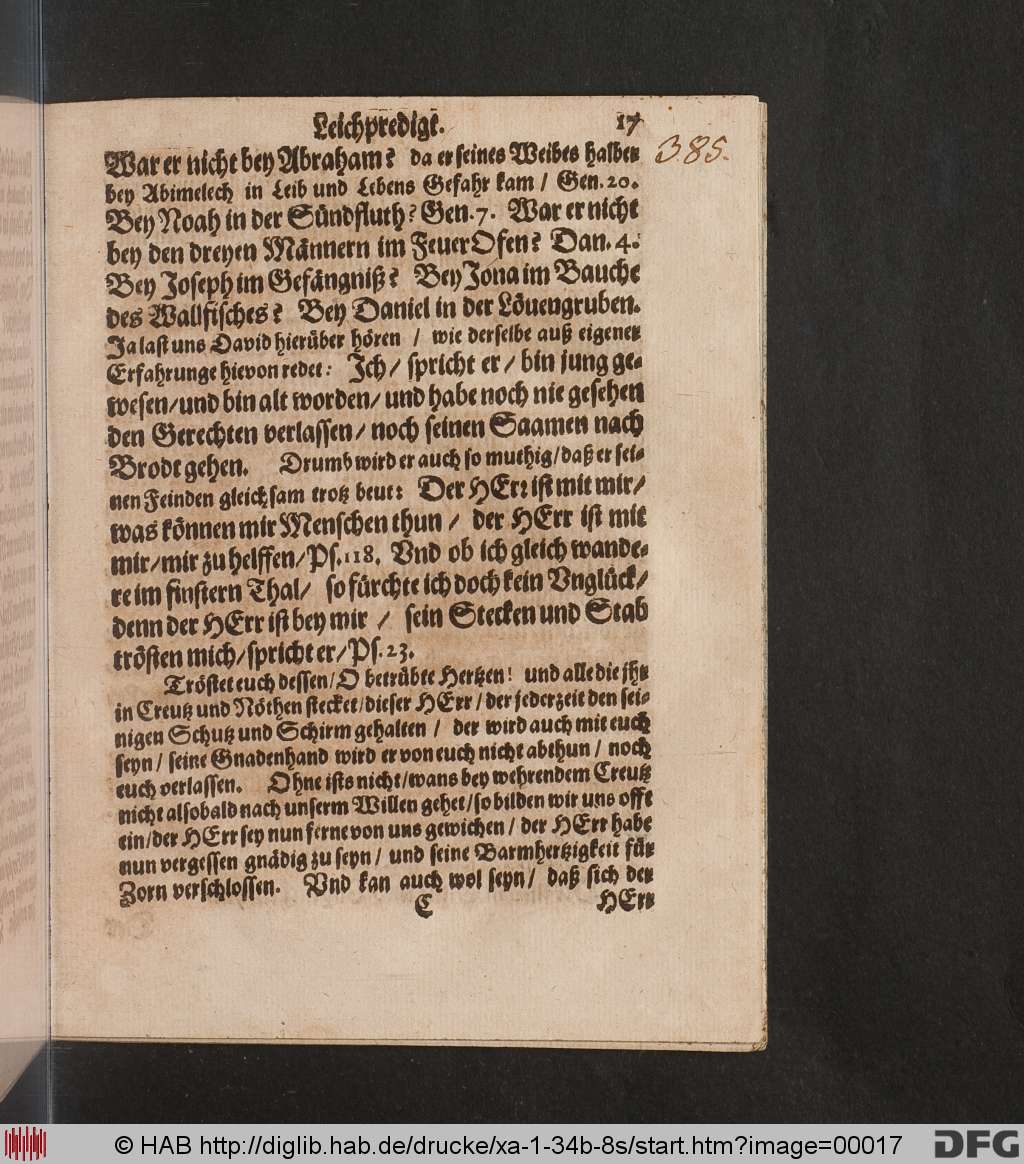 Leichpredigt. 17
385.
War er nicht bey Abraham? da er seines Weibes halber
bey Abimelech in Leib und Lebens Gefahr kam / Gen. 20.
Bey Noah in der Sündfluth? Gen. 7. War er nicht
bey den dreyen Männern im FeuerOfen? Dan. 4.
Bey Joseph im Gefängniß? Bey Jona im Bauche
des Wallfisches? Bey Daniel in der Löuengruben.
Ja last uns David hierüber hören / wie derselbe auß eigener
Erfahrunge hievon redet: Ich / spricht er / bin jung ge-
wesen / und bin alt worden / und habe noch nie gesehen
den Gerechten verlassen / noch seinen Saamen nach
Brodt gehen. Drumb wird er auch so muthig / daß er sei-
nen Feinden gleichsam trotz beut: Der HErr ist mit mir /
was können mir Menschen thun / der HErr ist mit
mir / mir zu helffen / Ps. 118. Vnd ob ich gleich wande-
re im finstern Thal / so fürchte ich doch kein Vnglück /
denn der HErr ist bey mir / sein Stecken und Stab
trösten mich / spricht er / Ps. 23.
Tröstet euch dessen / O betrübte Hertzen! und alle die jhr
in Creutz und Nöthen stecket / dieser HErr / der jederzeit den sei-
nigen Schutz und Schirm gehalten / der wird auch mit euch
seyn / seine Gnadenhand wird er von euch nicht abthun / noch
euch verlassen. Ohne ists nicht / wans bey wehrendem Creutz
nicht alsobald nach unserm Willen gehet / so bilden wir uns offt
ein / der HErr sey nun ferne von uns gewichen / der HErr habe
nun vergessen gnädig zu seyn / und seine Barmhertzigkeit für
Zorn verschlossen. Vnd kan auch wol seyn / daß sich der
C HErr
© HAB http://diglib.hab.de/drucke/xa-1-34b-8s/start.htm?image=00017 DFG